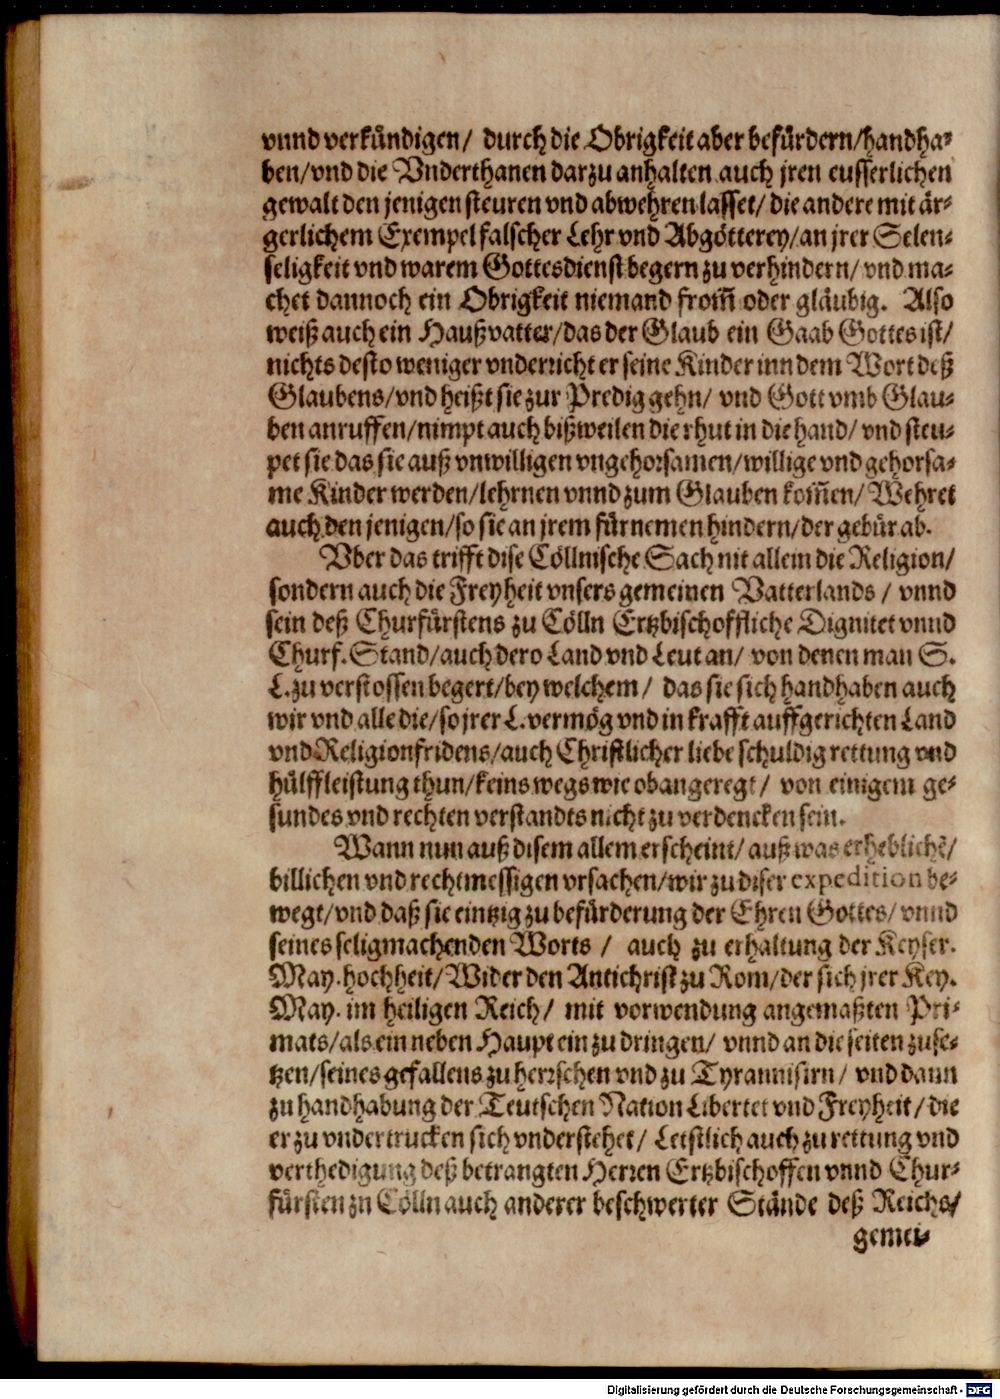 vnnd verkündigen/ durch die Obrigkeit aber befürdern/handha⸗
ben/vnd die Vnderthanen darzu anhalten auch jren eusserlichen
gewalt den jenigen steuren vnd abwehren lasset/ die andere mit är⸗
gerlichem Exempel falscher Lehr vnd Abgötterey/an jrer Selen⸗
seligkeit vnd warem Gottesdienst begern zu verhindern/ vnd ma⸗
chet dannoch ein Obrigkeit niemand from̃ oder gläubig. Also
weiß auch ein Haußvatter/das der Glaub ein Gaab Gottes ist/
nichts desto weniger vnderricht er seine Kinder inn dem Wort deß
Glaubens/vnd heißt sie zur Predig gehn/ vnd Gott vmb Glau⸗
ben anruffen/nimpt auch bißweilen die rhut in die hand/ vnd steu⸗
pet sie das sie auß vnwilligen vngehorsamen/willige vnd gehorsa⸗
me Kinder werden/lehrnen vnnd zum Glauben kom̃en/ Wehret
auch den jenigen/so sie an jrem fürnemen hindern/der gebür ab.
Vber das trifft dise Cöllnische Sach nit allein die Religion/
sondern auch die Freyheit vnsers gemeinen Vatterlands / vnnd
sein deß Churfürstens zu Cölln Ertzbischoffliche Dignitet vnnd
Churf. Stand/auch dero Land vnd Leut an/ von denen man S.
L. zu verstossen begert/bey welchem/ das sie sich handhaben auch
wir vnd alle die/so jrer L. vermög vnd in krafft auffgerichten Land
vnd Religionfridens/auch Christlicher liebe schuldig rettung vnd
hülffleistung thun/keins wegs wie obangeregt/ von einigem ge⸗
sundes vnd rechten verstandts nicht zu verdencken sein.
Wann nun auß disem allem erscheint/ auß was erheblichẽ/
billichen vnd rechtmessigen vrsachen/wir zu diser expedition be⸗
wegt/vnd daß sie eintzig zu befürderung der Ehren Gottes/ vnnd
seines seligmachenden Worts / auch zu erhaltung der Keyser.
May. hochheit/ Wider den Antichrist zu Rom/der sich jrer Key.
May. im heiligen Reich/ mit vorwendung angemaßten Pri⸗
mats/als ein neben Haupt ein zu dringen/ vnnd an die seiten zuse⸗
tzen/seines gefallens zu herrschen vnd zu Tyrannisirn/ vnd dann
zu handhabung der Teutschen Nation Libertet vnd Freyheit/ die
er zu vndertrucken sich vnderstehet/ Letstlich auch zu rettung vnd
verthedigung deß betrangten Herren Ertzbischoffen vnnd Chur⸗
fürsten zu Cölln auch anderer beschwerter Stände deß Reichs/
gemei⸗
Digitalisierung gefördert durch die Deutsche Forschungsgemeinschaft - DFG